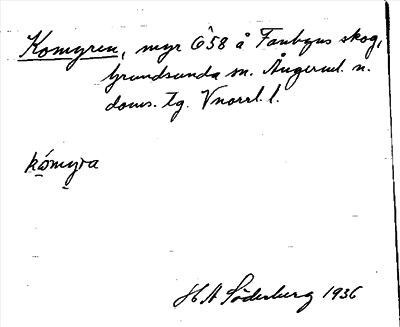 Komyren, myr G58 å Fanbyns skog,
Grundsunda sn. Ångerml. n.
doms. tg. Vnorrl. l.
kómyra
H A Söderberg 1936